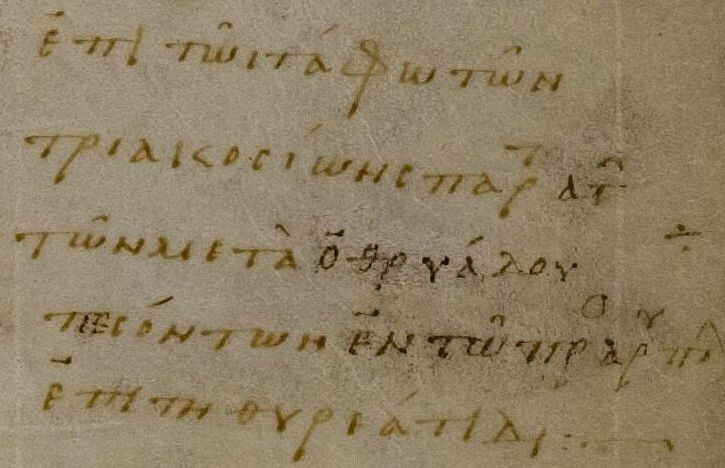 ἐπὶ τῶι τάφω τῶν
τριακοσίων σπαρτ
τῶν μετὰ ὀθρυάλου
πεσόντων ἐν τῶ
ἐπὶ τη θυρεάτιδι:—